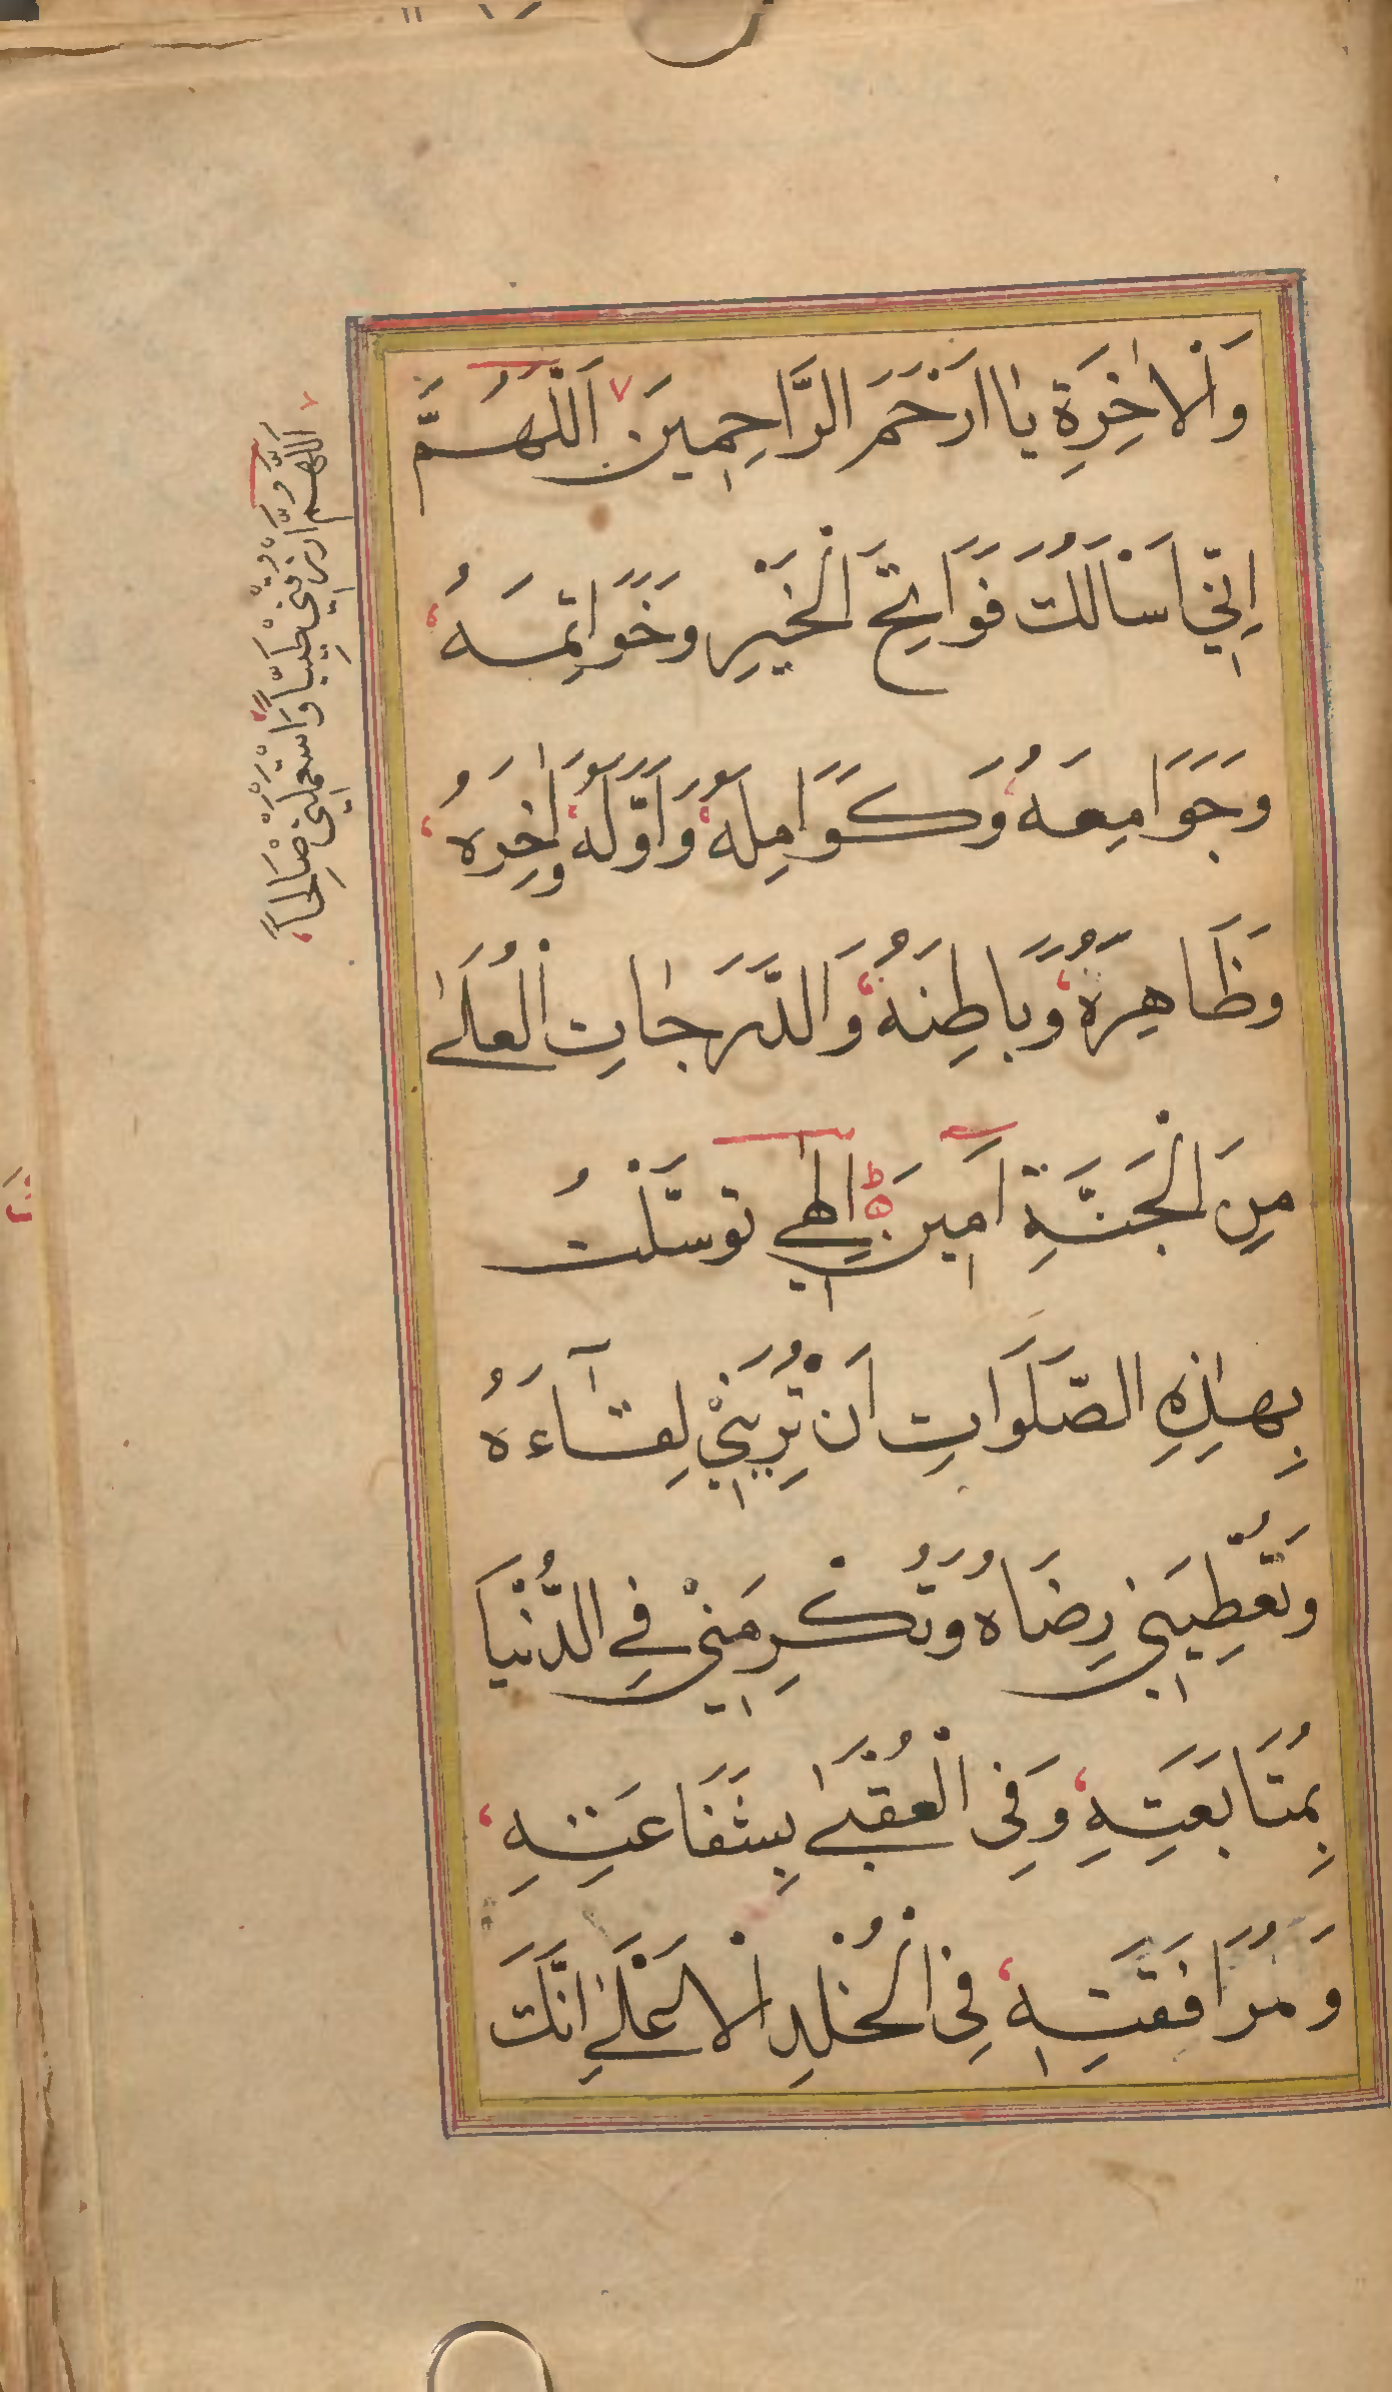 وَالْاٰخِرَةِ يٰا اَرْحَمَ الرَّاحِمِينَ اَللّٰهُمَّ
اِنِّي اَسْاَلُكَ فَوَاتِحَ الْخَيْرِ وَخَوَاتِمَهُ
وَجَوَامِعَهُ وَكَوَامِلَهُ وَاَوَّلَهُ وَاٰخِرَهُ
وَظَاهِرَهُ وَبَاطِنَهُ وَالدَّرَجٰاتِ الْعُلَىٰ
مِنَ الْجَنَّةِ اٰمِينَ اِلٰهِي تَوَسَّلْتُ
بِهٰذِهِ الصَّلَوَاتِ اَنْ تُرِيَنِيْ لِقَآءَهُ
وَتُعْطِيَنِي رِضَاهُ وَتُكْرِمَنِيْ فِي الدُّنْيَا
بِمُتَابَعَتِهِ وَفِي الْعُقْبَىٰ بِشَفَاعَتِهِ
وَمُرَافَقَتِهِ فِي الْخُلْدِ الْاَعْلَىٰ اِنَّكَ
اَللّٰهُمَّ ارْزُقْنِيْ طَيِّبًا وَاسْتَعْمِلْنِيْ صَالِحًا